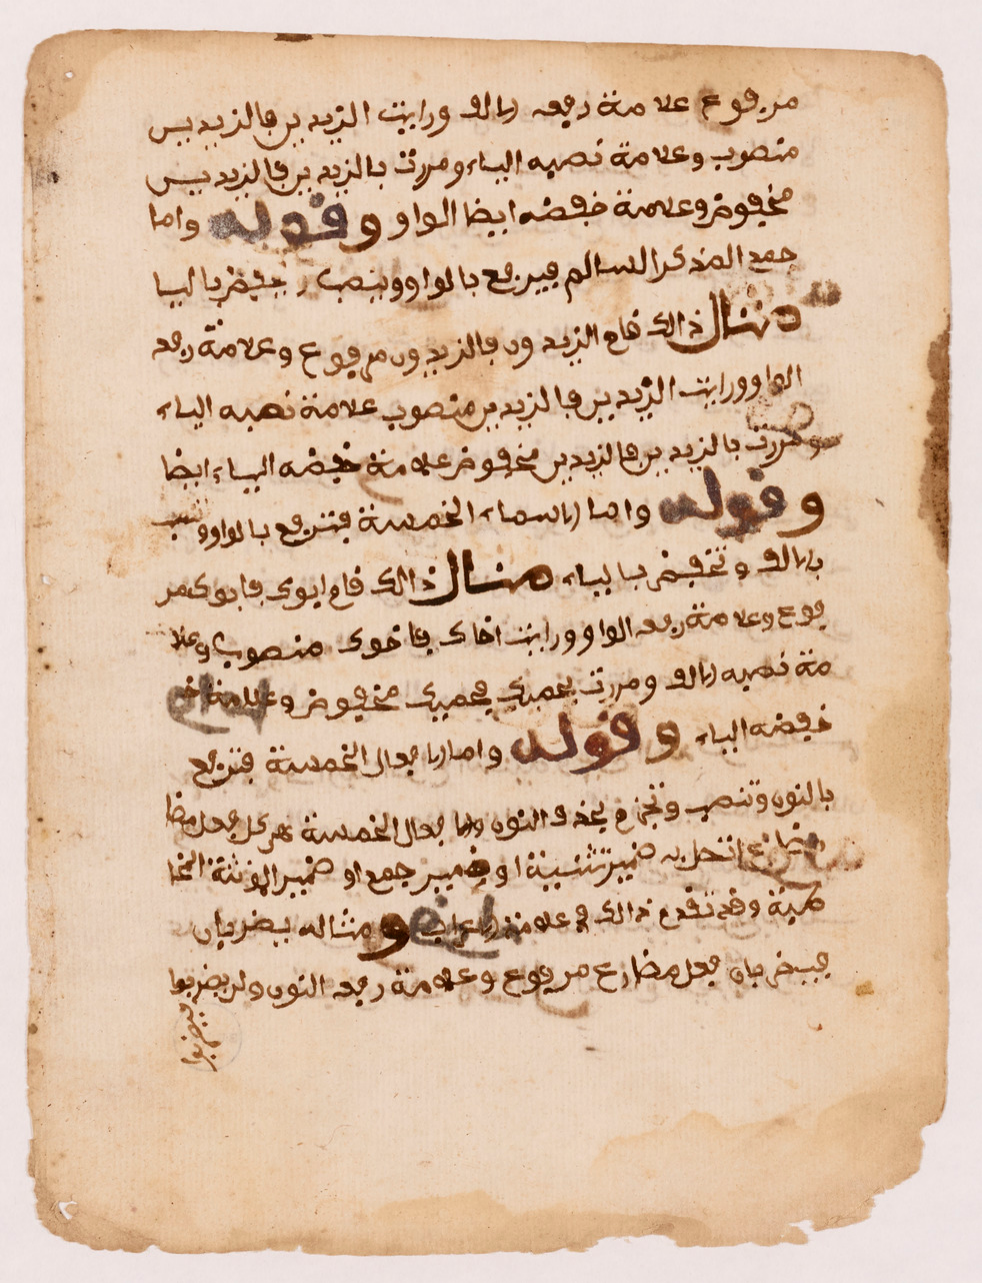 مرفوع علامة رفعه الالف ورايت الزيدين فالزيدين
منصوب وعلامة نصبه الياء ومررت بالزيدين فالزيدين
مخفوض وعلامة خفضه ايضا الواو وقوله واما
جمع المذكر السالم فيرفع بالواو وينصب ويخفض باليا
مثال ذالك قام الزيدون فالزيدون مرفوع وعلامة رفعه
الواو ورايت الزيدين فالزيدين منصوب علامة نصبه الياء
ومررت بالزيدين فالزيدين مخفوض علامة خفضه الياء ايضا
وقوله واما الاسماء الخمسة فترفع بالواو وتنصب
بالالف وتخفض بالياء مثال ذالك قام ابوك فابوك مر
فوع وعلامة رفعه الواو ورايت اخاك فاخوك منصوب وعلا
مة نصبه الالف ومررت بحميك فحميك مخفوض وعلامة
خفضه الياء وقوله واما الافعال الخمسة فترفع
بالنون وتنصب وتجزم بحذف النون والافعال الخمسة هي كل فعل مضا
مضارع اتصل به ضمير تثنية او ضمير جمع او ضمير المونثة المخا
طبة وقد تقدم ذالك في علامة الاعراب ومثاله يضربان
فيضربان فعل مضارع مرفوع وعلامة رفعه النون ولن يضربوا
فيضربوا